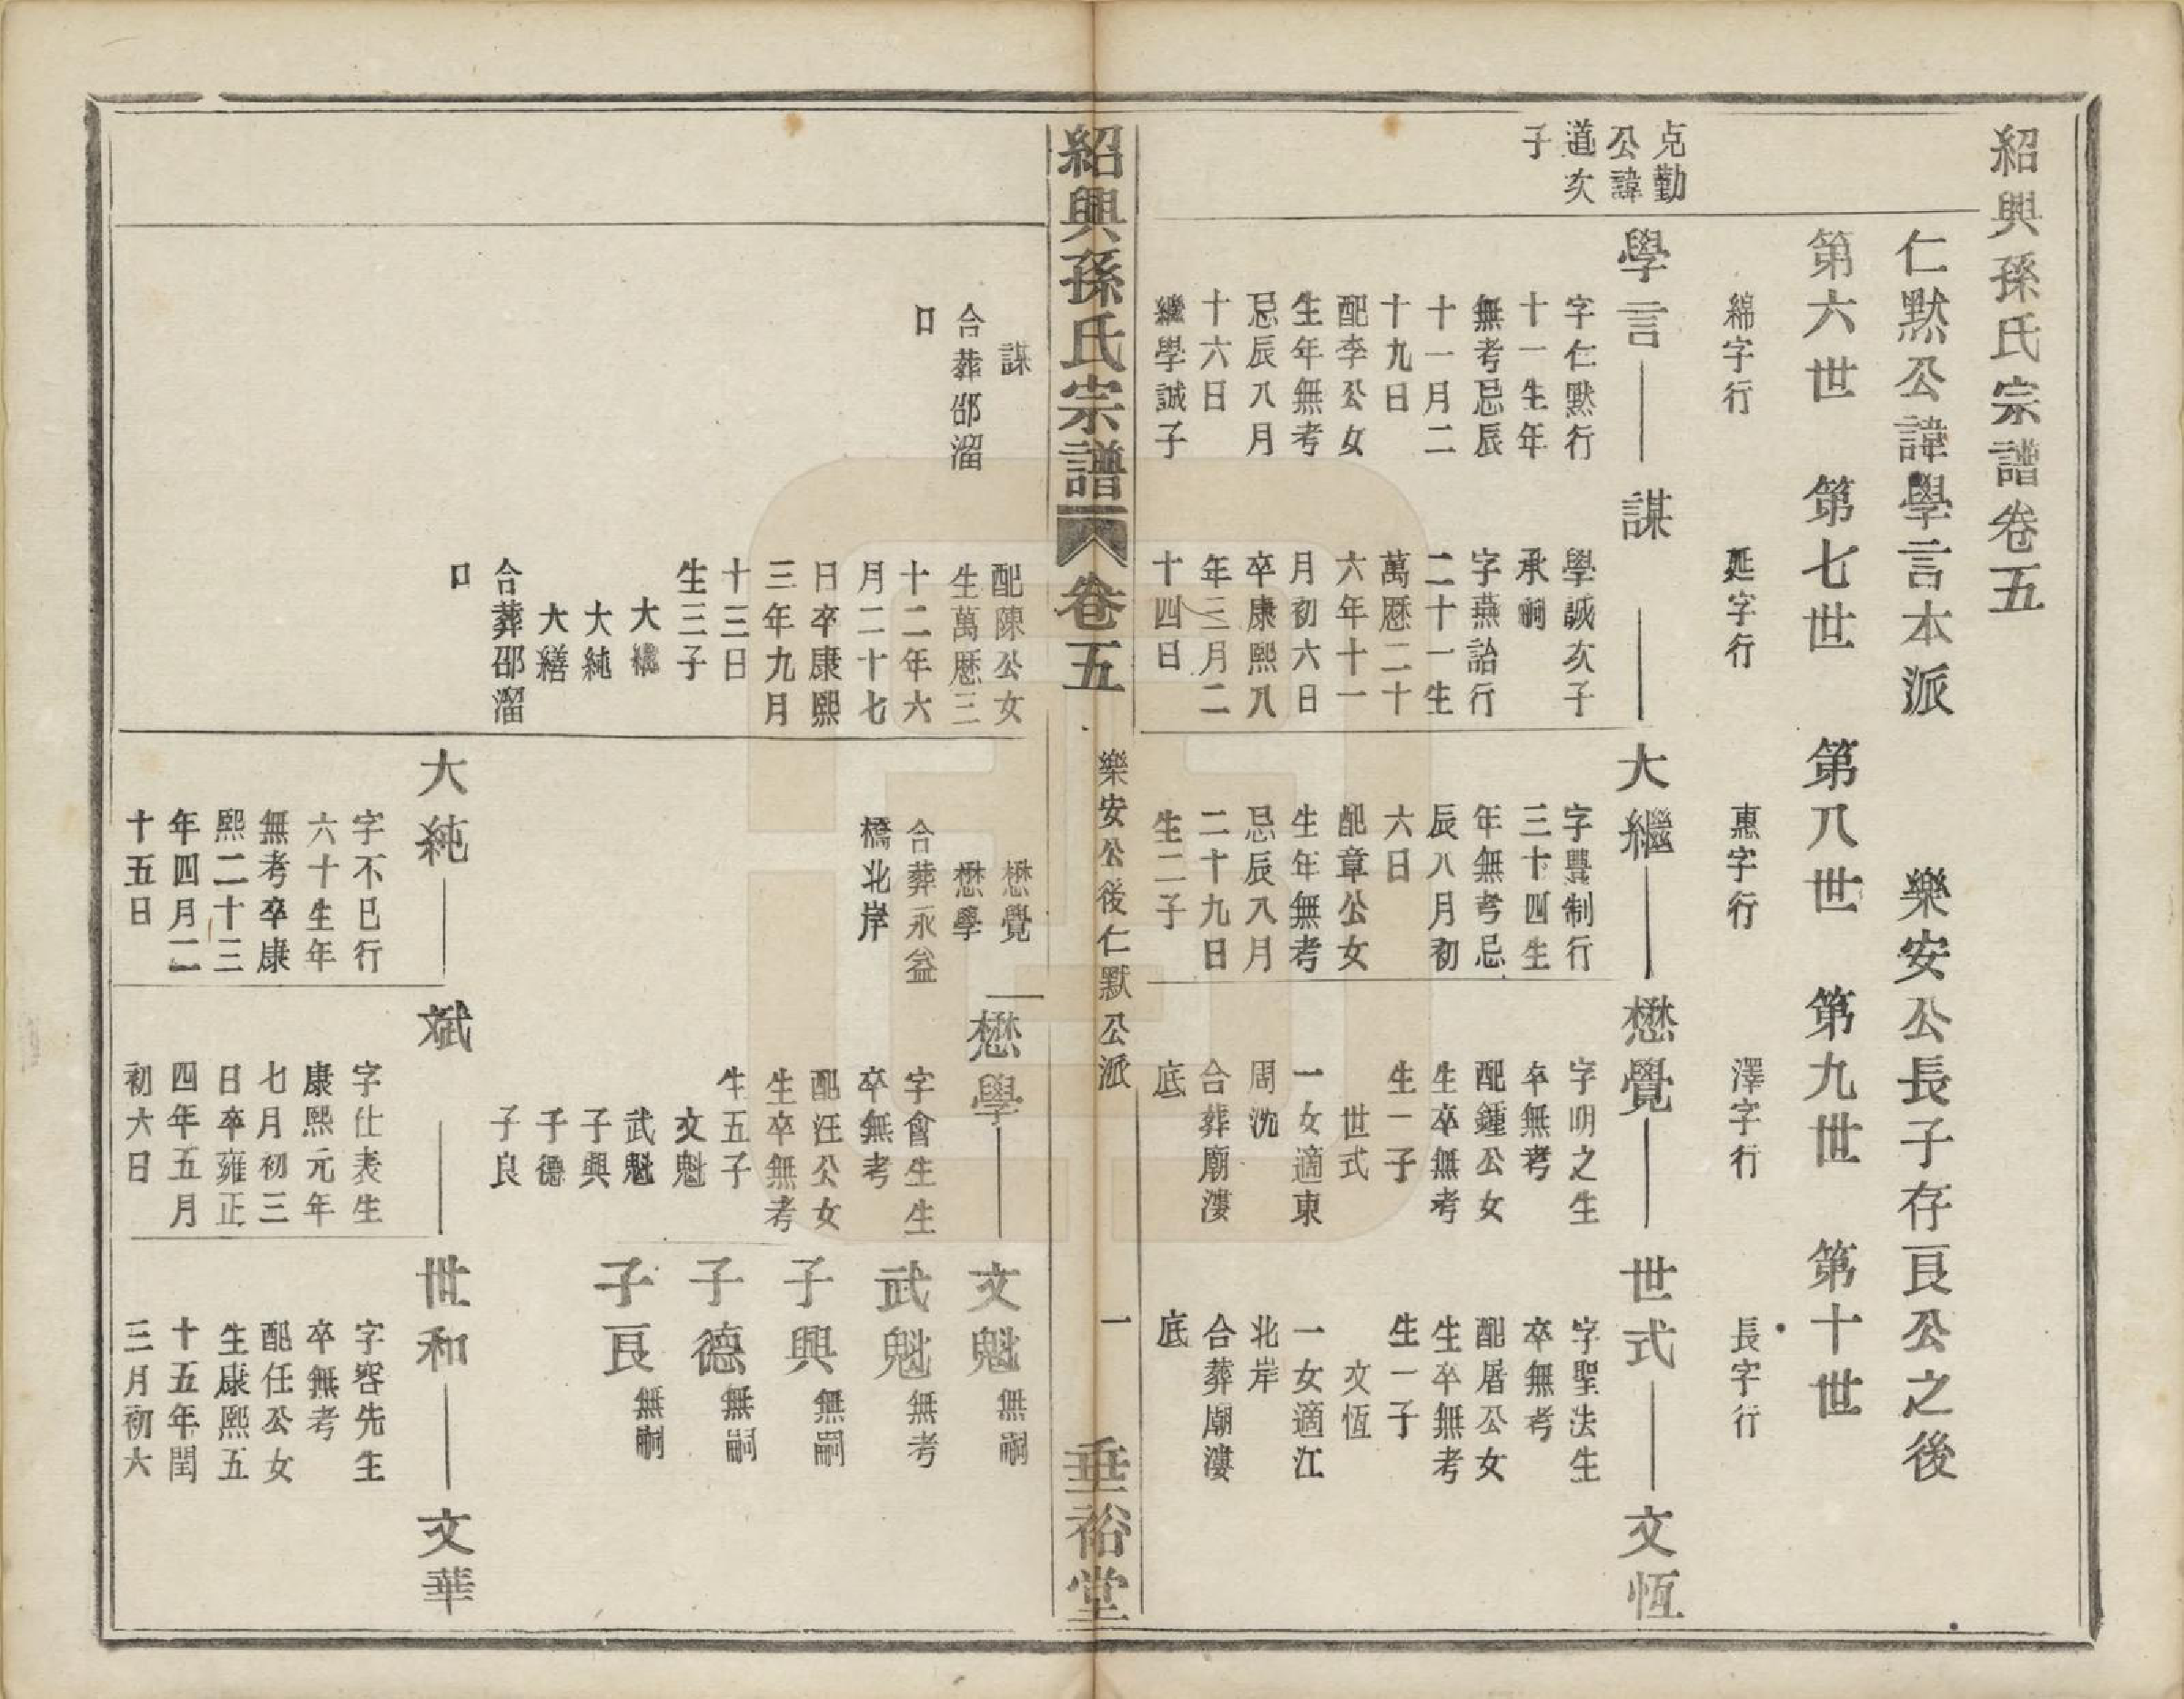 紹興孫氏宗譜卷五
仁默公諱學言本派　樂安公長子存良公之後
第六世　第七世　第八世　第九世　第十世
綿字行　延字行　惠字行　澤字行　長字行
克勤
公諱
道次
子
學言
字仁默行
十一生年
無考忌辰
十一月二
十九日
配李公女
生年無考
忌辰八月
十六日
繼學誠子
謀
學誠次子
承嗣
字燕詒行
二十一生
萬歷二十
六年十一
月初六日
卒康熙八
年三月二
十四日
大繼
字豐制行
三十四生
年無考忌
辰八月初
六日
配章公女
生年無考
忌辰八月
二十九日
生二子
懋覺
字明之生
卒無考
配鍾公女
生卒無考
生一子
世式
一女適東
周沈
合葬廟漊
底
世式
字聖法生
卒無考
配屠公女
生卒無考
生一子
文恆
一女適江
北岸
合葬廟漊
底
文恆
紹興孫氏宗譜　卷五　樂安公後仁默公派　一　垂裕堂
謀
合葬邵溜
口
配陳公女
生萬歷三
十二年六
月二十七
日卒康熙
三年九月
十三日
生三子
大繼
大純
大繕
合葬邵溜
口
懋覺
懋學
合葬永益
橋北岸
懋學
字會生生
卒無考
配汪公女
生卒無考
生五子
文魁
武魁
子興
子德
子良
文魁無嗣
武魁無考
子興無嗣
子德無嗣
子良無嗣
大純
字不已行
六十生年
無考卒康
熙二十三
年四月二
十五日
斌
字仕表生
康熙元年
七月初三
日卒雍正
四年五月
初六日
世和
字容先生
卒無考
配任公女
生康熙五
十五年閏
三月初六
文華